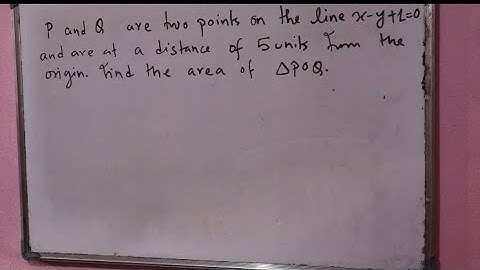 P and Q are two points on the line x-y+1=0
and are at a distance of 5 units from the
origin. Find the area of △POQ.